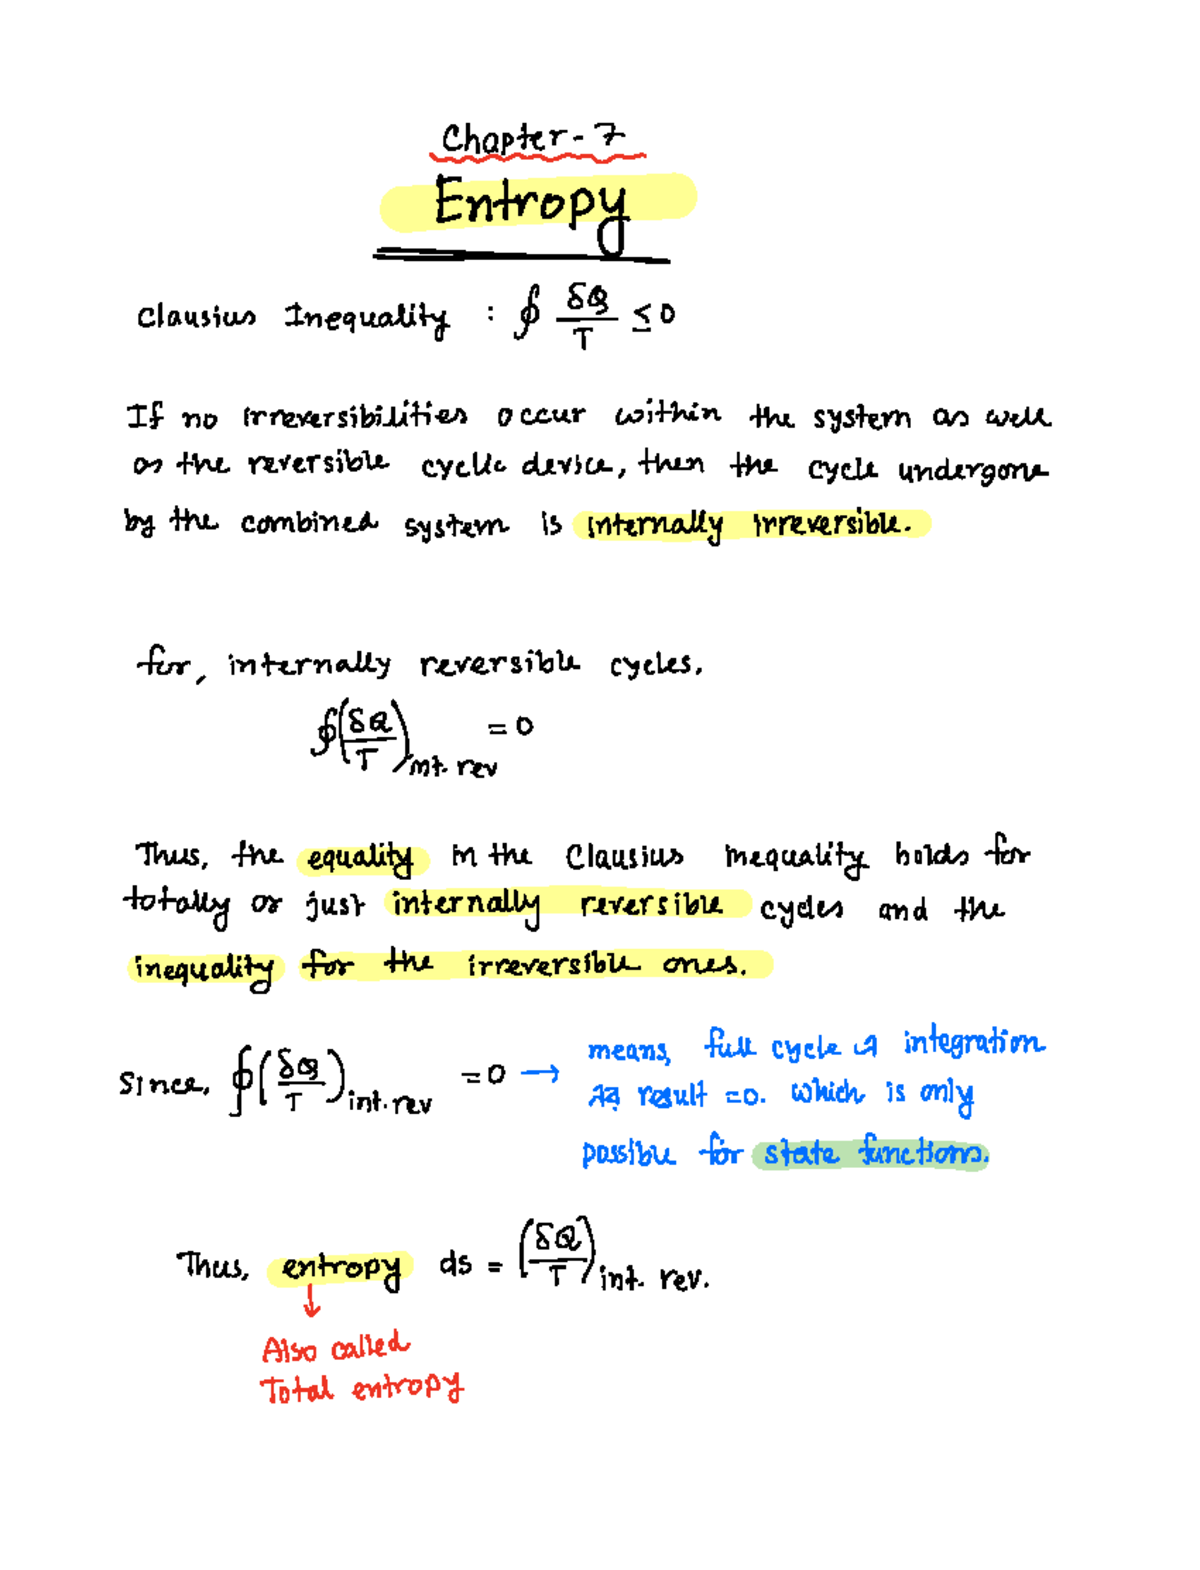 Chapter-7
Entropy
Clausius Inequality : ∮ δQ/T ≤ 0
If no irreversibilities occur within the system as well
as the reversible cyclic device, then the cycle undergone
by the combined system is internally irreversible.
for, internally reversible cycles.
∮(δQ/T)int. rev = 0
Thus, the equality in the Clausius inequality holds for
totally or just internally reversible cycles and the
inequality for the irreversible ones.
Since, ∮(δQ/T)int. rev = 0 →
means, full cycle integration
result = 0. which is only
possible for state functions.
Thus, entropy ds = (δQ/T)int. rev.
↓
Also called
Total entropy